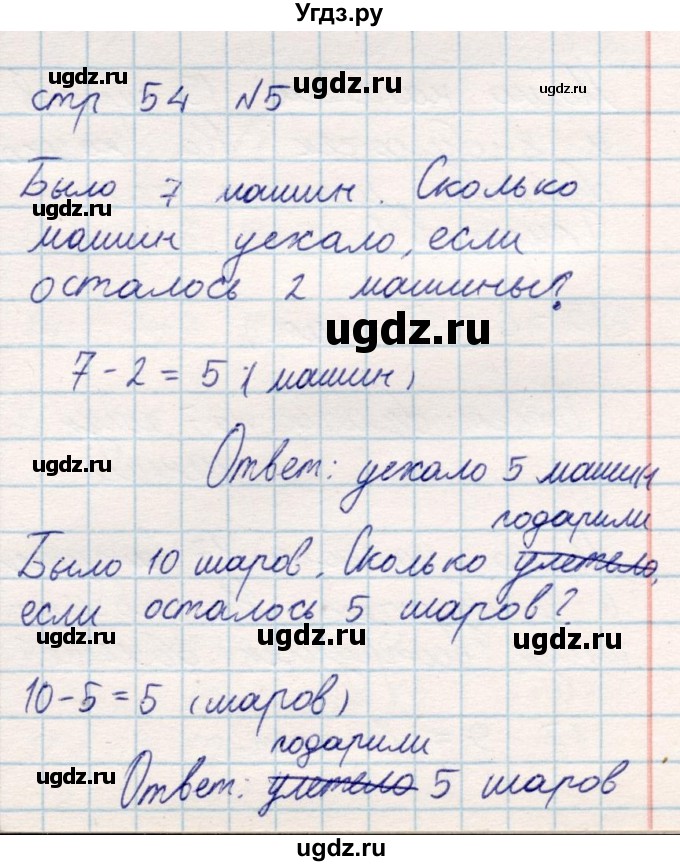 Угдз.ру
ugdz.ru ugdz.ru ugdz.ru
стр 54 №5
Было 7 машин. Сколько
ugdz.ru ugdz.ru
машин уехало, если
осталось 2 машины?
ugdz.ru
7-2=5 (машин)
Ответ: уехало 5 машин
ugdz.ru ugdz.ru ugdz.ru
подарили
Было 10 шаров. Сколько улетело,
если осталось 5 шаров?
ugdz.ru ugdz.ru ugdz.ru
10-5=5 (шаров)
подарили
Ответ: улетело 5 шаров
ugdz.ru ugdz.ru ugdz.ru
ugdz.ru